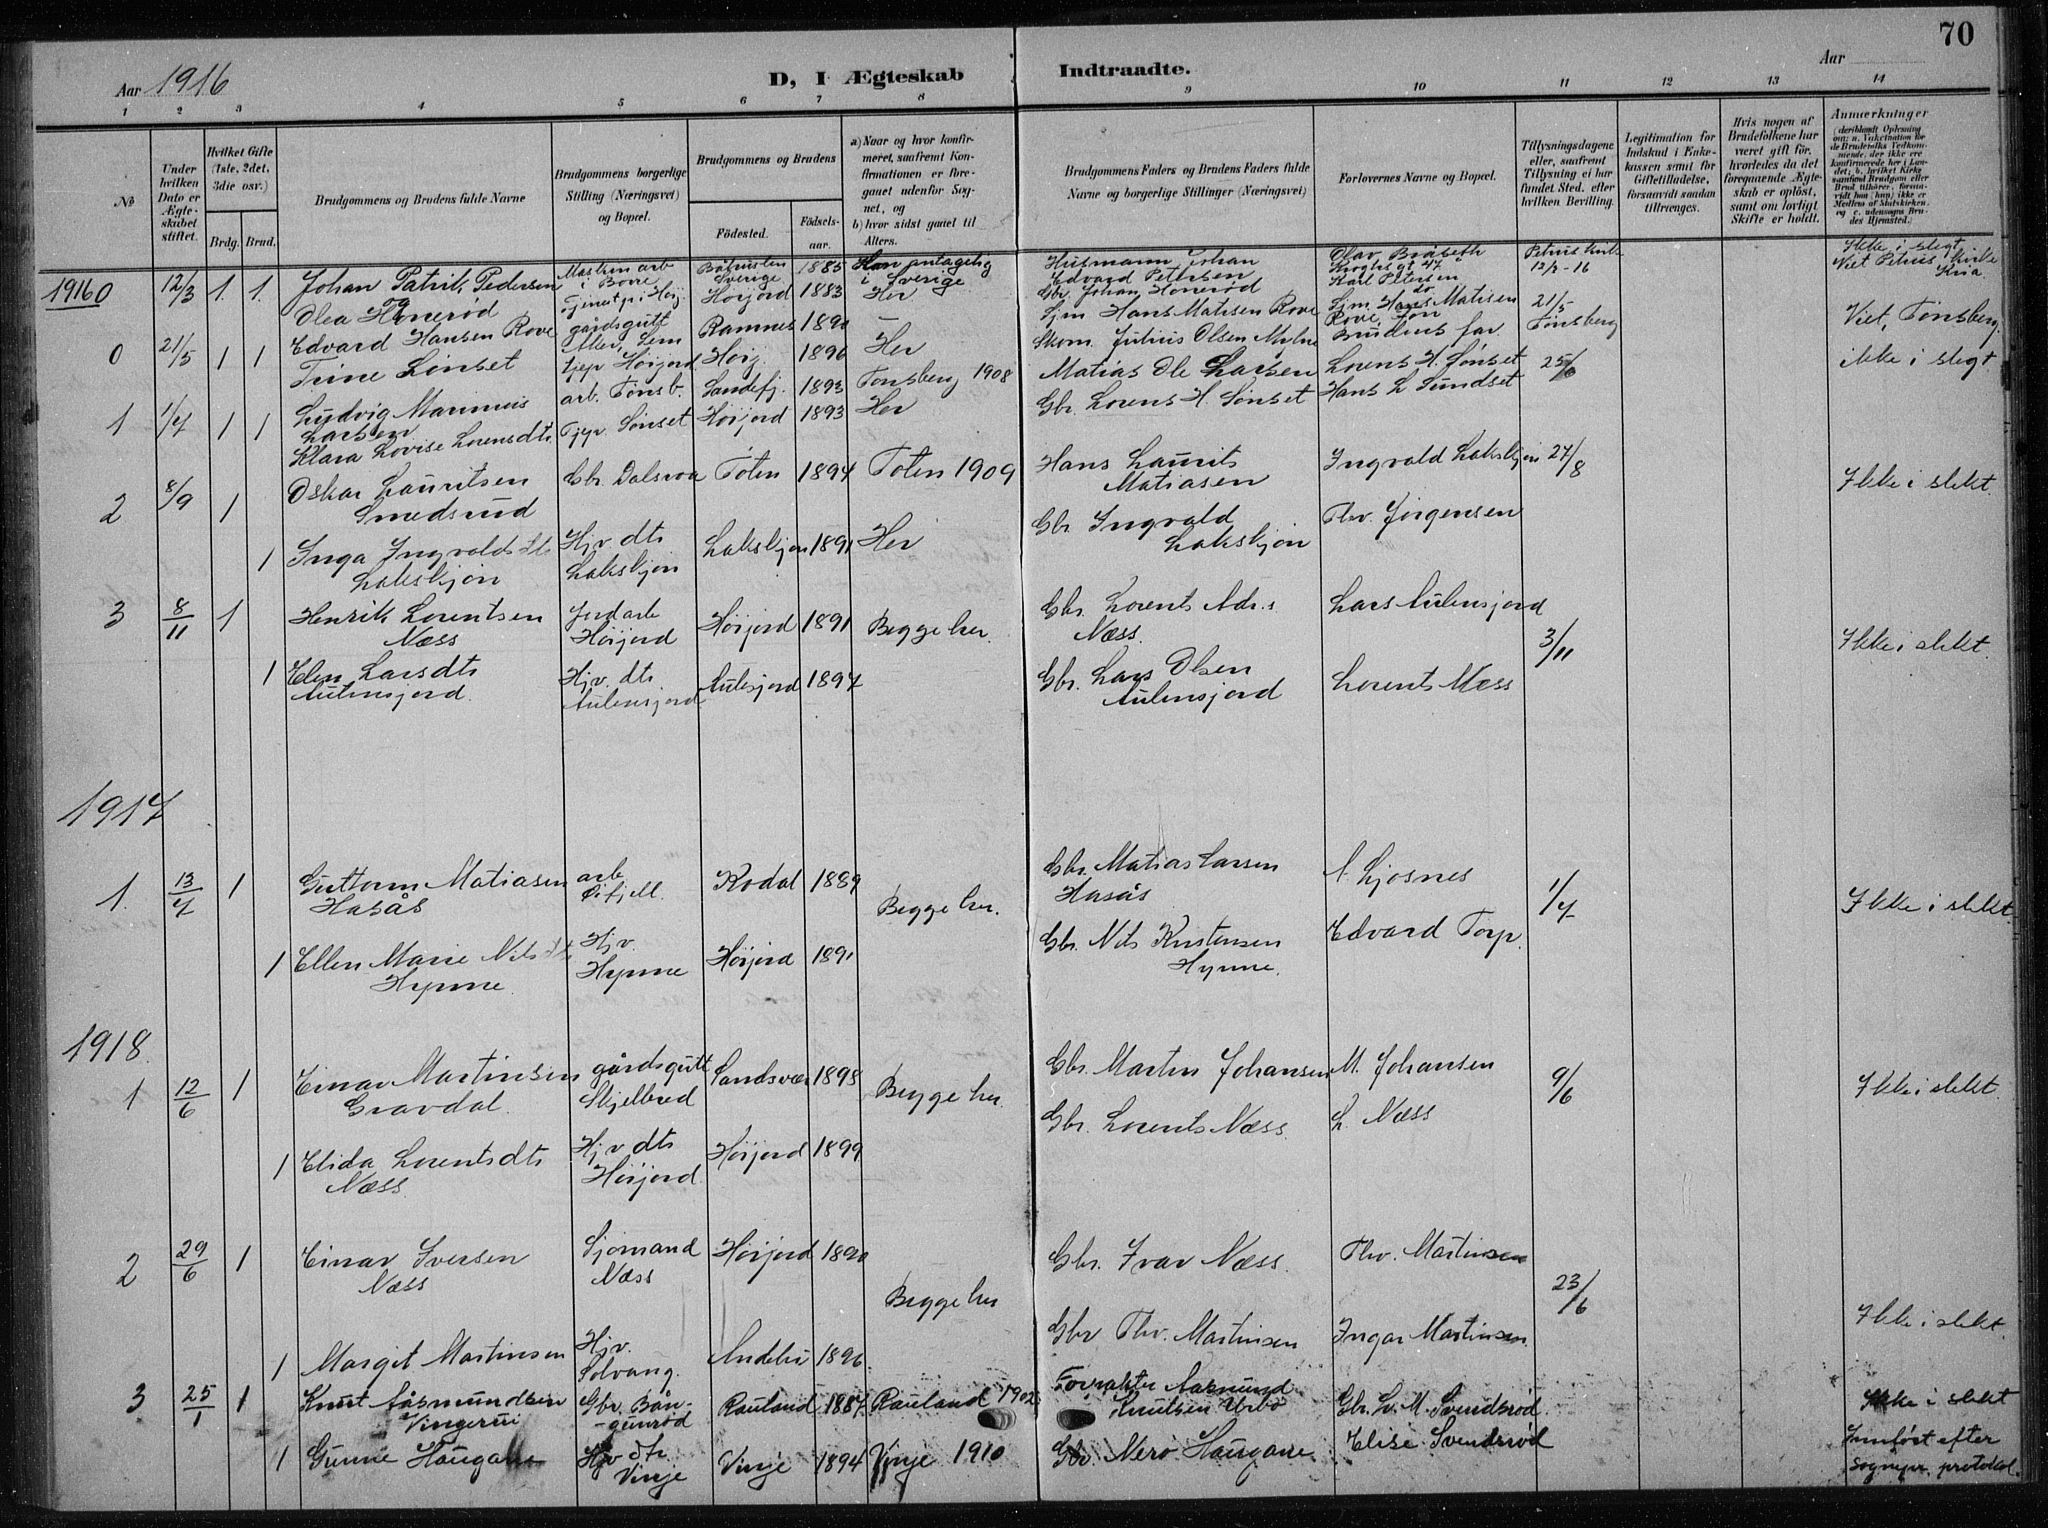 70
Aar 1916
D, I Ægteskab Indtraadte.
Aar
1 2 3 4 5 6 7 8 9 10 11 12 13 14
№
Under hvilken Dato er Ægteskabet stiftet.
Hvilket Gifte (1ste, 2det, 3die osv.)
Brdg. Brud.
Brudgommens og Brudens fulde Navne
Brudgommens borgerlige Stilling (Næringsvei) og Bopæl.
Brudgommens og Brudens
Fødested. Fødselsaar.
a) Naar og hvor konfirmeret, saafremt Konfirmationen er foregaaet udenfor Sognet, og
b) hvor sidst gaaet til Alters.
Brudgommens Faders og Brudens Faders fulde Navne og borgerlige Stillinger (Næringsvei)
Forlovernes Navne og Bopæl.
Tillysningsdagene eller, saafremt Tillysning ei har fundet Sted, efter hvilken Bevilling.
Legitimation for Indskud i Enkekassen samt for Giftetilladelse, forsaavidt saadan tiltrænges.
Hvis nogen af Brudefolkene har været gift før, hvorledes da det foregaaende Ægteskab er opløst, samt om lovligt Skifte er holdt.
Anmærkninger
1916 0 12/3 1. 1. Johan Patrik Pedersen Maskinarb i Borre Båhuslen Sverige 1885 antagelig i Sverige Husmann Johan Edvard Petersen Olav Bråseth Petrus kirke 12/3-16 Ikke i slegt
og Olea Honerød Høijord 1883 Her Gbr. Johan Honerød Karl Petersen Viet Petrus kirke Kria
0 21/5 1 1 Edvard Hansen Rove gårdsgutt Ramnes 1890 — Sjm Hans Matisen Rove Sjm Hans Matisen Rove, Jon 21/5 Tønsberg Viet, Tønsberg,
Trine Lønset tjep Høijord Høij 1896 Her Skom. Julius Olsen Brudens far ikke i slegt
1 1/7 1 1 Ludvig Marinius Larsen arb. Tønsb. Sandefj. 1893 Tønsberg 1908 Matias Ole Larsen Lorens H. Sønset 25/6
Klara Lovise Lorensdtr. Tjep. Sønset Høijord 1893 Her Gbr. Lorens H. Sønset Hans L Sundset
2 8/9 1 Oskar Lauritsen Smedsrud Gbr. Dalsroa Toten 1894 Toten 1909 Hans Laurits Matiasen Ingvald Lakskjøn 27/8 Ikke i slekt.
1 Inga Ingvaldsdtr Lakskjøn Hjv dtr Lakskjøn Lakskjøn 1891 Her Gbr Ingvald Lakskjøn Thv. Jørgensen
3 8/11 1 Henrik Lorentsen Næss Jordarb Høijord Høijord 1891 Begge her. Gbr. Lorents Adr.s Næss. Lars Aulensjord 3/11 Ikke i slekt.
1 Elen Larsdtr Aulensjord. Hjv. dtr Aulensjord Aulesjord 1897 Gbr. Lars Olsen Aulensjord Lorents Næss
1917
1. 13/7 1 Guttorm Matiasen Hasås arb Øifjell. Kodal 1889 Begge her. Gbr. Matias Larsen Hasås A. Ljosnes 1/7 Ikke i slekt.
1 Ellen Marie Nilsdtr Hynne Hjv. Hynne Høijord 1891 Gbr. Nils Kristensen Hynne. Edvard Torp.
1918.
1 12/6 1 Einar Martinsen Gravdal. gårdsgutt Skjelbred Sandsvær 1898 Begge her. Gbr. Martin Johansen M. Johansen 9/6 Ikke i slekt.
1 Elida Lorentsdtr Næss. Hjv dtr Høijord. Høijord 1899 Gbr. Lorents Næss. L. Næss
2 29/6 1 Einar Iversen Næss Sjømand Næss Høijord 1890 Begge her Gbr. Ivar Næss. Thv. Martinsen 23/6
1 Margit Martinsen Hjv. Solvang. Andebu 1896. Gbr Thv. Martinsen Ingar Martinsen. Ikke i slekt.
3 25/1 1 Knut Åsmundsen Vingerui Gbr. Bångunrød Rauland 1887 Rauland 1902 Forpakter Aasmund Knutsen Gbr. L. M. Svendsrød. Ikke i slekt
1 Gunne Haugane Hjv dtr Vinje Vinje 1894 Vinje 1910 Gbr. Nero Haugane Elise Svendsrød Innført efter sognepr. protokol.